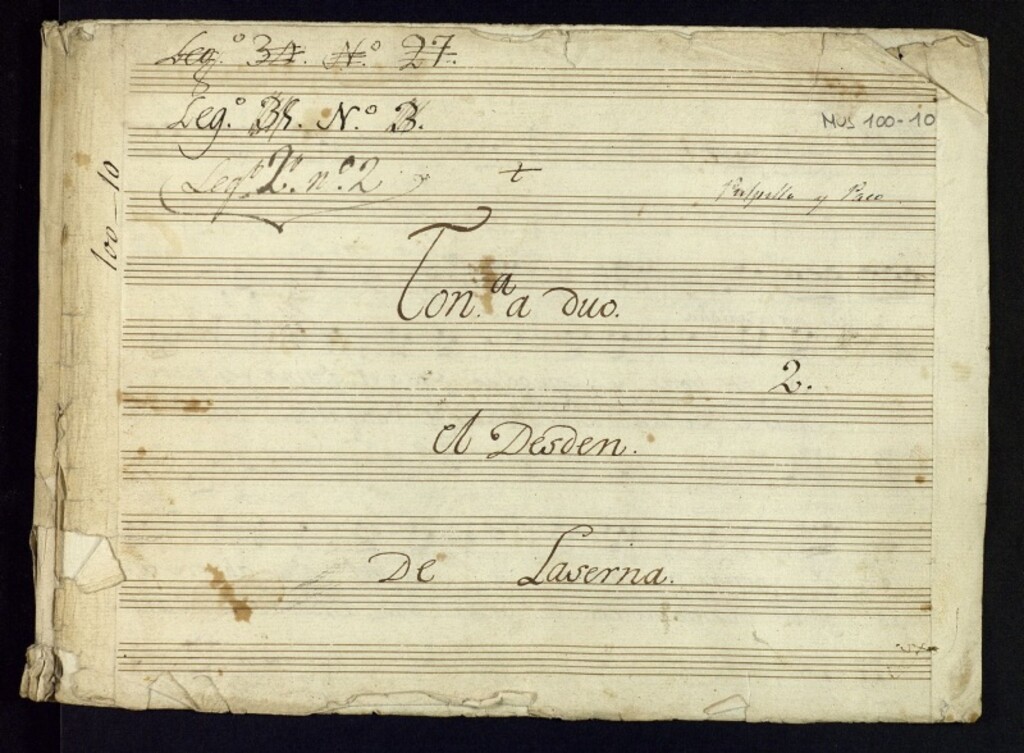 Leg.º 34. N.º 27.
Leg.º N.º 3.
MUS 100-10
Leg.º 2º. nº. 2
y Paco
100-10
Ton.ª a duo.
2.
el Desden.
De Laserna.